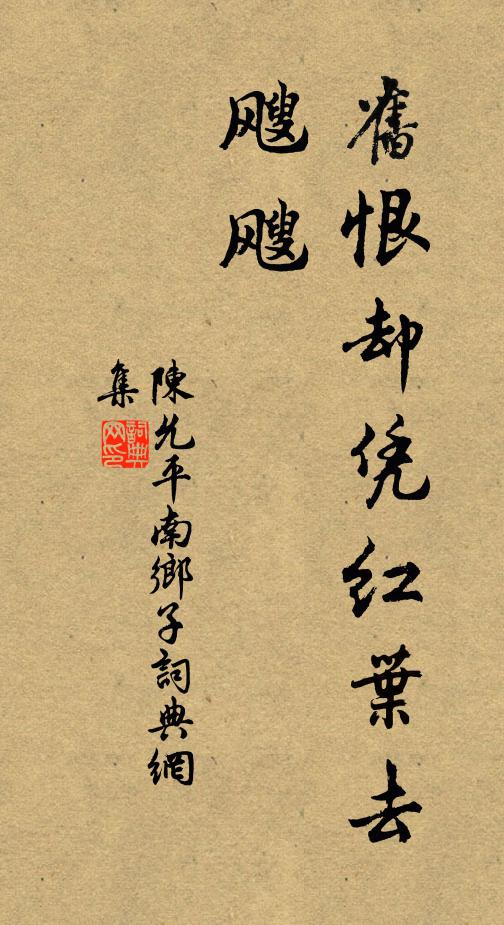 舊恨却凭紅葉去
飕飕
陳允平南鄉子詞典網
集
詞典
网印